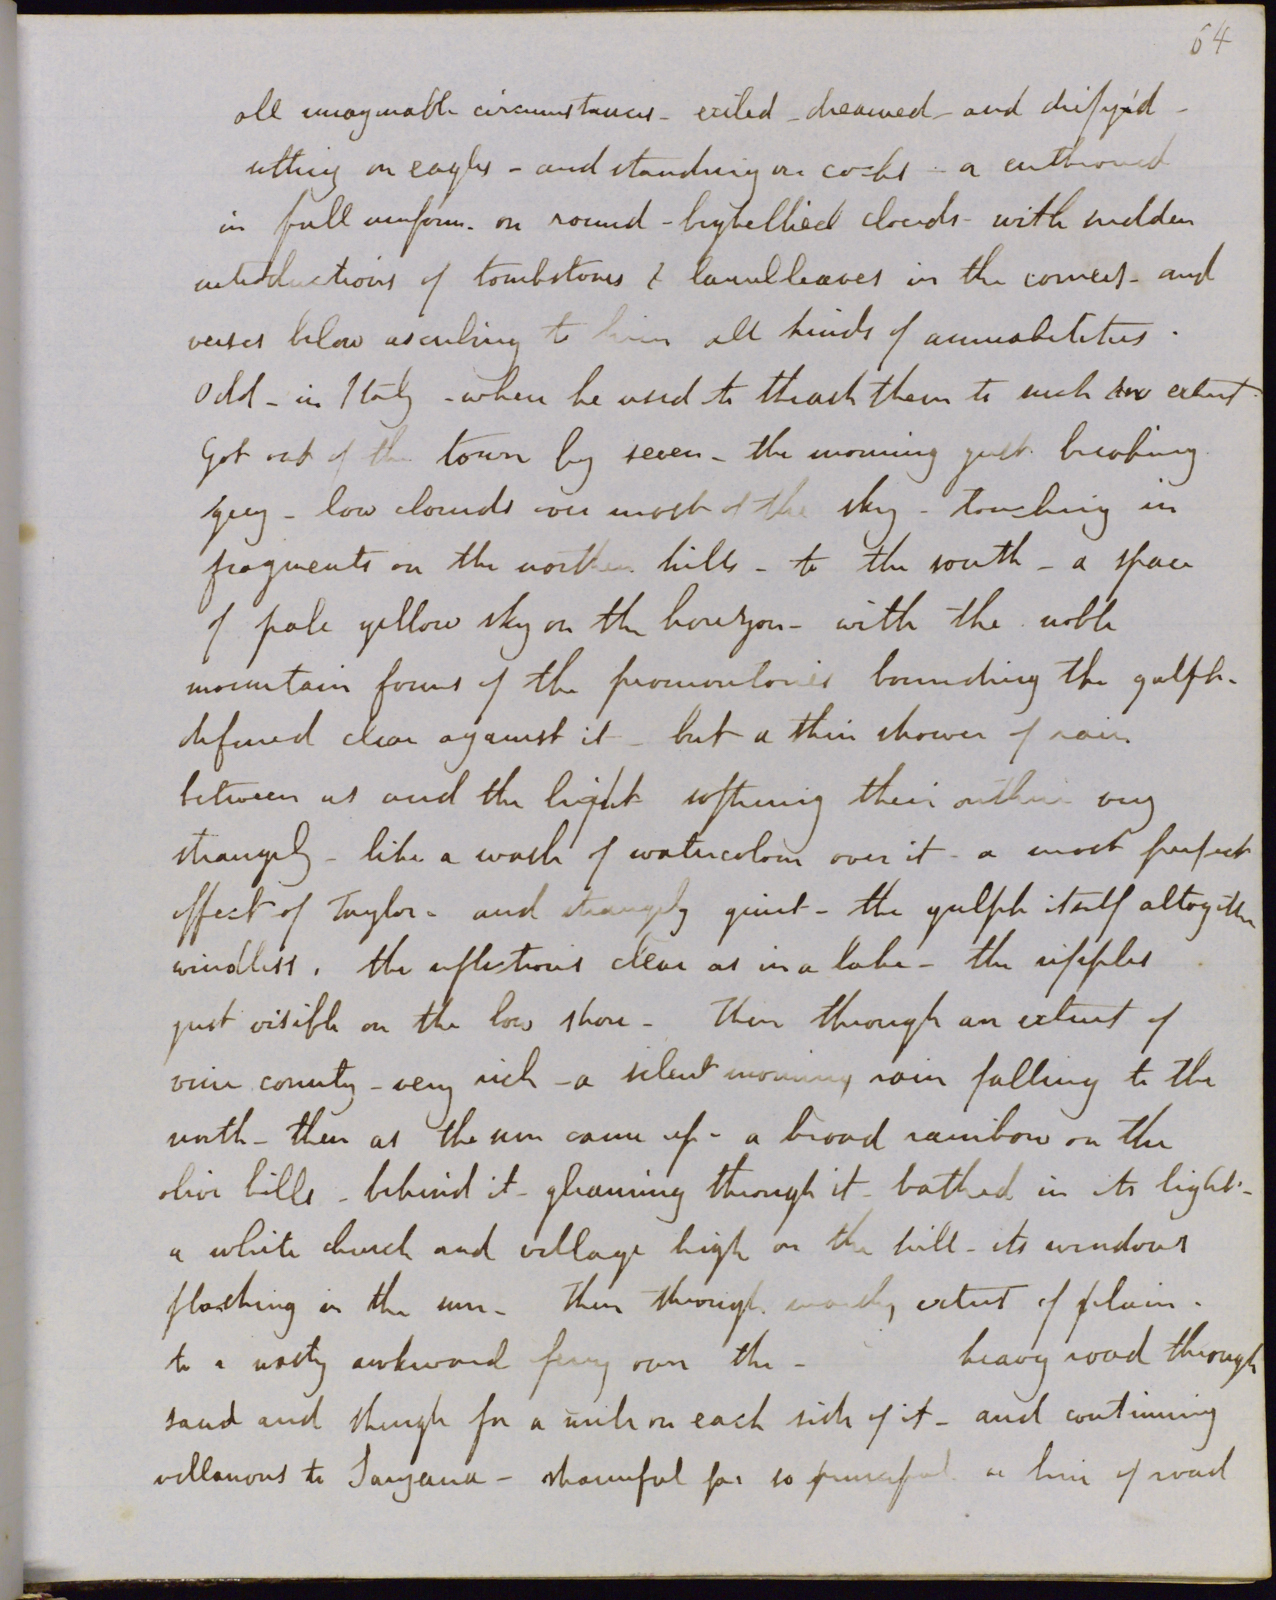 64
all imaginable circumstances - exiled - dreamed - and deifyed -
sitting on eagles - and standing on cocks - a enthroned
in full uniform - on round - bigbellied clouds - with sudden
introductions of tombstones & laurelleaves in the corners - and
verses below ascribing to him all kinds of amiabilities .
Odd - in Italy - when he used to thrash them to such an extent.
Got out of the town by seven - the morning just breaking
grey - low clouds over most of the sky - touching in
fragments on the northern hills - to the south - a space
of pale yellow sky on the horizon - with the noble
mountain forms of the promontories bounding the gulph -
defined clear against it - but a thin shower of rain
between us and the light softening their outline very
strangely - like a wash of watercolour over it - a most perfect
effect of Taylor - and strangely quiet - the gulph itself altogether
windless . the reflections clear as in a lake - the ripples
just visible on the low shore - Then through an extent of
vine country - very rich - a silent morning rain falling to the
north - then as the sun came up - a broad rainbow on the
olive hills - behind it - gleaming through it - bathed in its light -
a white church and village high on the hill - its windows
flashing in the sun - Then through marshy extent of plain .
to a nasty awkward ferry over the - heavy road through
sand and shingle for a mile on each side of it - and continuing
villanous to Sarzana - shameful for so principal a line of road